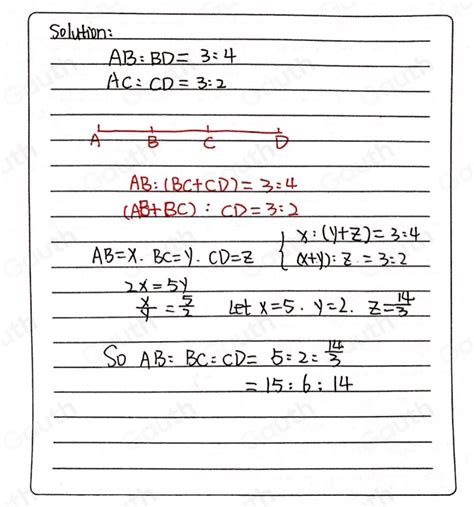 Solution:
AB:BD= 3:4
AC:CD = 3:2
A B C D
AB:(BC+CD)= 3:4
(AB+BC) : CD=3:2
AB=X. BC=Y. CD=Z { x:(y+z)=3:4
(x+y):z.=3:2
2x=5y
x/y = 5/2 Let x=5. y=2. z=14/3
So AB: BC:CD= 5:2:14/3
= 15:6:14
Gauth